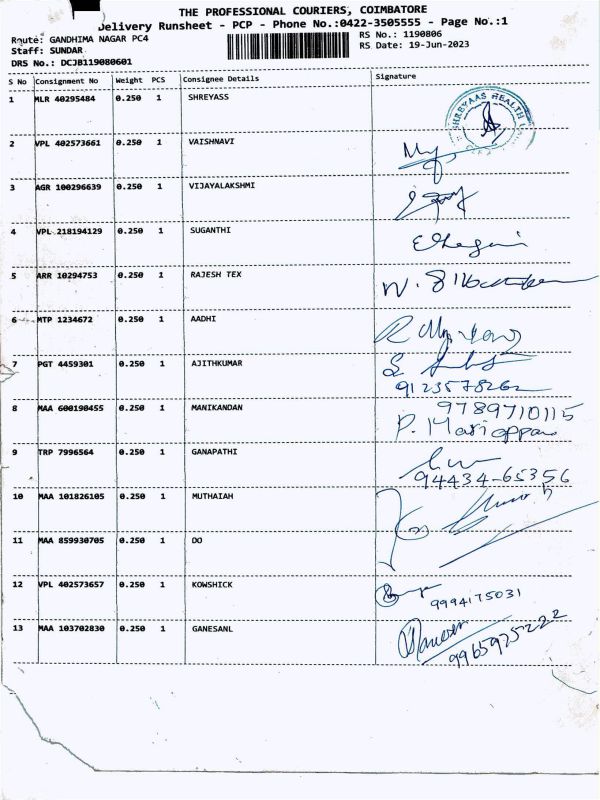 THE PROFESSIONAL COURIERS, COIMBATORE
Delivery Runsheet - PCP - Phone No.:0422-3505555 - Page No.:1
Route: GANDHIMA NAGAR PC4
RS No.: 1190806
Staff: SUNDAR
RS Date: 19-Jun-2023
DRS No.: DCJB119080601
S No Consignment No Weight PCS Consignee Details Signature
1 MLR 40295484 0.250 1 SHREYASS
SHREYAAS HEALTH
2 VPL 402573661 0.250 1 VAISHNAVI
3 AGR 100296639 0.250 1 VIJAYALAKSHMI
4 VPL 218194129 0.250 1 SUGANTHI
5 ARR 10294753 0.250 1 RAJESH TEX
6 MTP 1234672 0.250 1 AADHI
7 PGT 4459301 0.250 1 AJITHKUMAR
9123578262
8 MAA 600190455 0.250 1 MANIKANDAN
9789710115
P. Mariappan
9 TRP 7996564 0.250 1 GANAPATHI
94434-65356
10 MAA 101826105 0.250 1 MUTHAIAH
11 MAA 859930705 0.250 1 DO
12 VPL 402573657 0.250 1 KOWSHICK
9994175031
13 MAA 103702830 0.250 1 GANESANL
9965925222